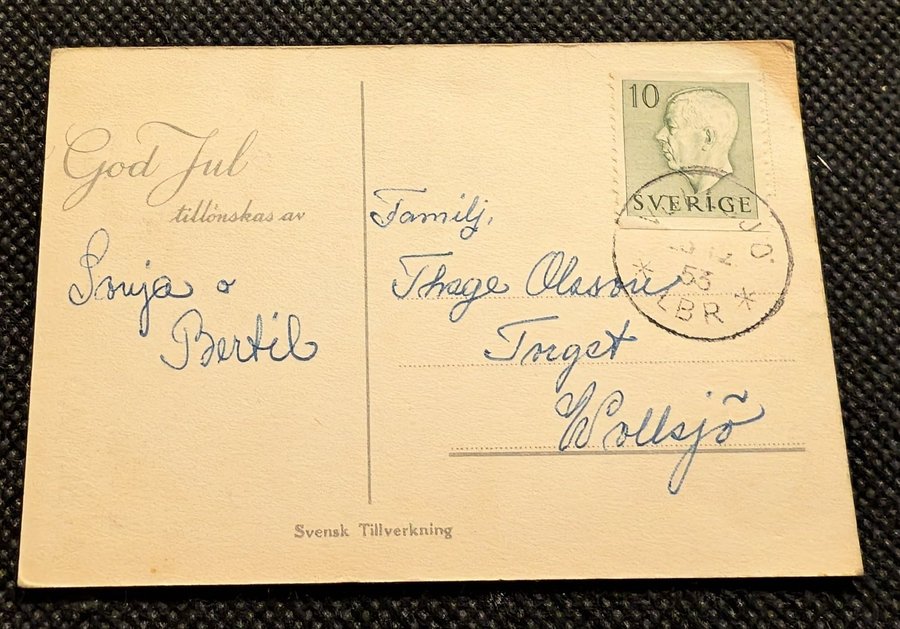 God Jul
tillönskas av
Sonja o
Bertil
Familj.
Thage Olsson
Torget
Wollsjö
10
SVERIGE
53
LBR
Svensk Tillverkning